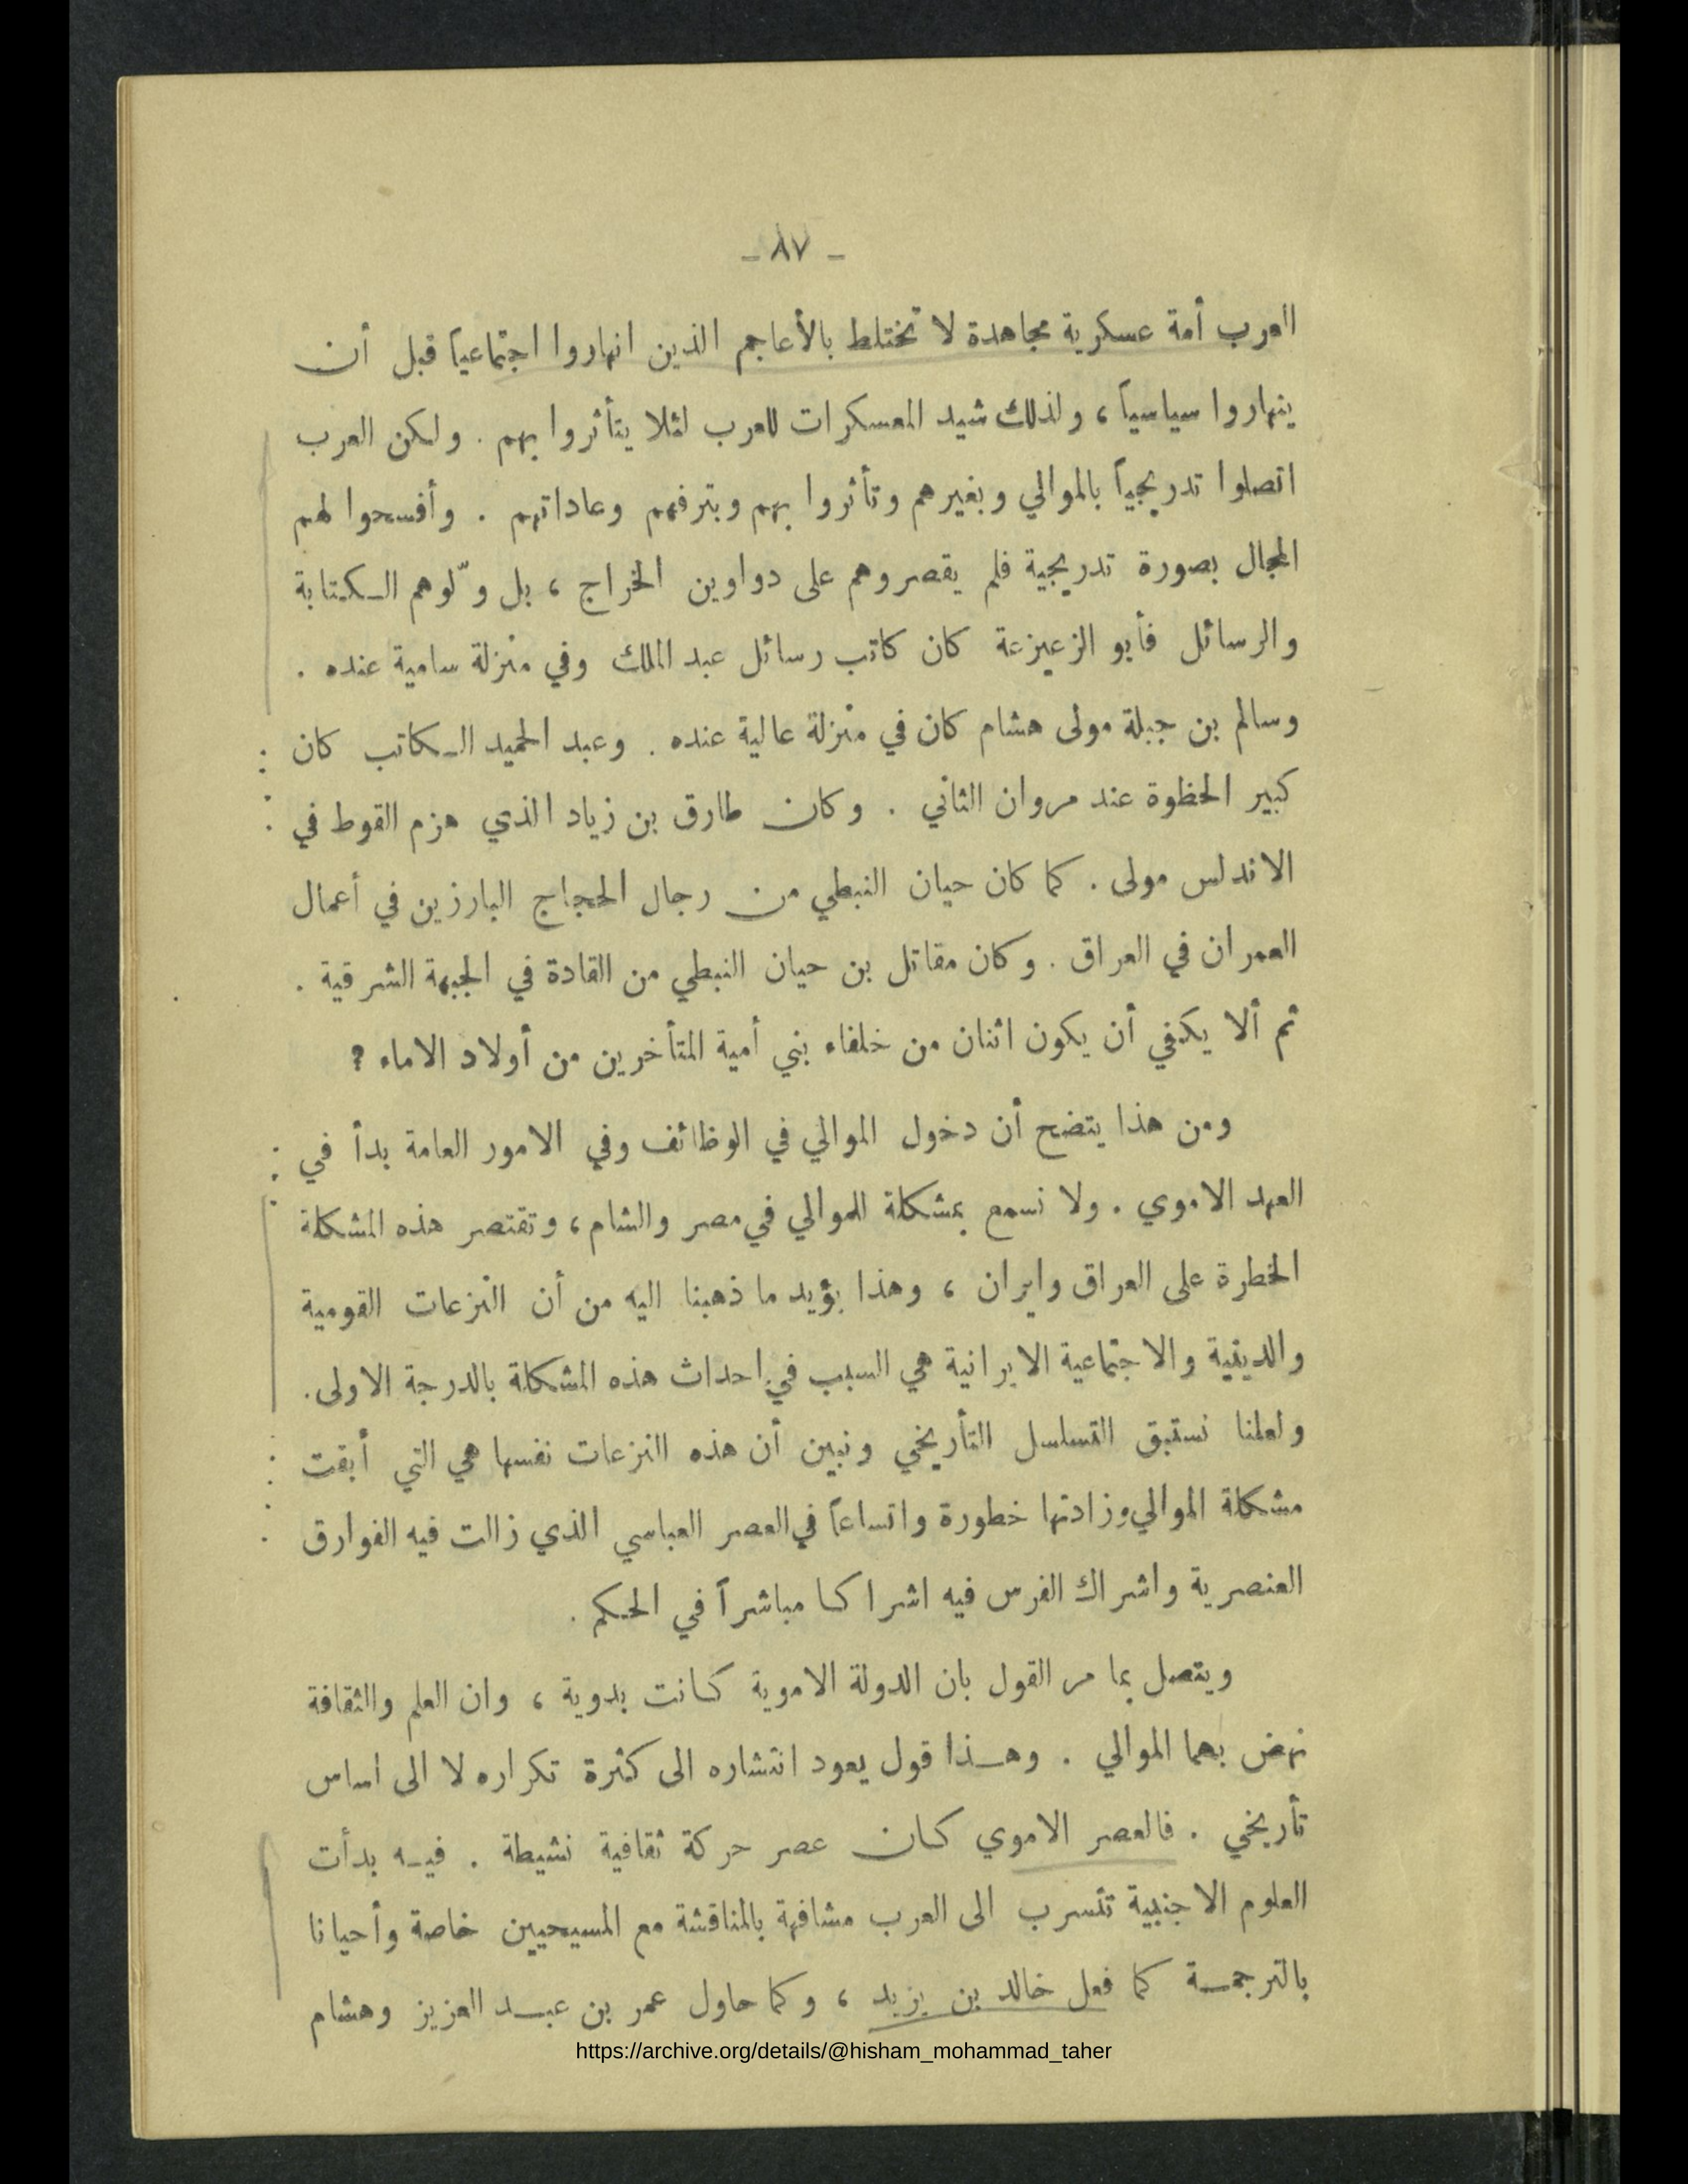 - ٨٧ -
العرب أمة عسكرية مجاهدة لا تختلط بالأعاجم الذين انهاروا اجتماعياً قبل أن
ينهاروا سياسياً ، ولذلك شيد المعسكرات للعرب لئلا يتأثروا بهم . ولكن العرب
اتصلوا تدريجياً بالموالي وبغيرهم وتأثروا بهم وبترفهم وعاداتهم . وأفسحوا لهم
المجال بصورة تدريجية فلم يقصروهم على دواوين الخراج ، بل ولّوهم الكتابة
والرسائل فأبو الزعيزعة كان كاتب رسائل عبد الملك وفي منزلة سامية عنده .
وسالم بن جبلة مولى هشام كان في منزلة عالية عنده . وعبد الحميد الكاتب كان
كبير الحظوة عند مروان الثاني . وكان طارق بن زياد الذي هزم القوط في
الاندلس مولى . كما كان حيان النبطي من رجال الحجاج البارزين في أعمال
العمران في العراق . وكان مقاتل بن حيان النبطي من القادة في الجبهة الشرقية .
ثم ألا يكفي أن يكون اثنان من خلفاء بني أمية المتأخرين من أولاد الاماء ؟
ومن هذا يتضح أن دخول الموالي في الوظائف وفي الامور العامة بدأ في
العهد الاموي . ولا نسمع بمشكلة الموالي في مصر والشام ، وتقتصر هذه المشكلة
الخطرة على العراق وايران ، وهذا يؤيد ما ذهبنا اليه من أن النزعات القومية
والدينية والاجتماعية الايرانية هي السبب في احداث هذه المشكلة بالدرجة الاولى .
ولعلنا نستبق التسلسل التأريخي ونبين أن هذه النزعات نفسها هي التي أبقت
مشكلة الموالي وزادتها خطورة واتساعاً في العصر العباسي الذي زالت فيه الفوارق
العنصرية واشراك الفرس فيه اشراكا مباشراً في الحكم .
ويتصل بما مر القول بان الدولة الاموية كانت بدوية ، وان العلم والثقافة
نهض بهما الموالي . وهذا قول يعود انتشاره الى كثرة تكراره لا الى اساس
تأريخي . فالعصر الاموي كان عصر حركة ثقافية نشيطة . فيه بدأت
العلوم الاجنبية تتسرب الى العرب مشافهة بالمناقشة مع المسيحيين خاصة وأحيانا
بالترجمة كما فعل خالد بن يزيد ، وكما حاول عمر بن عبد العزيز وهشام
https://archive.org/details/@hisham_mohammad_taher